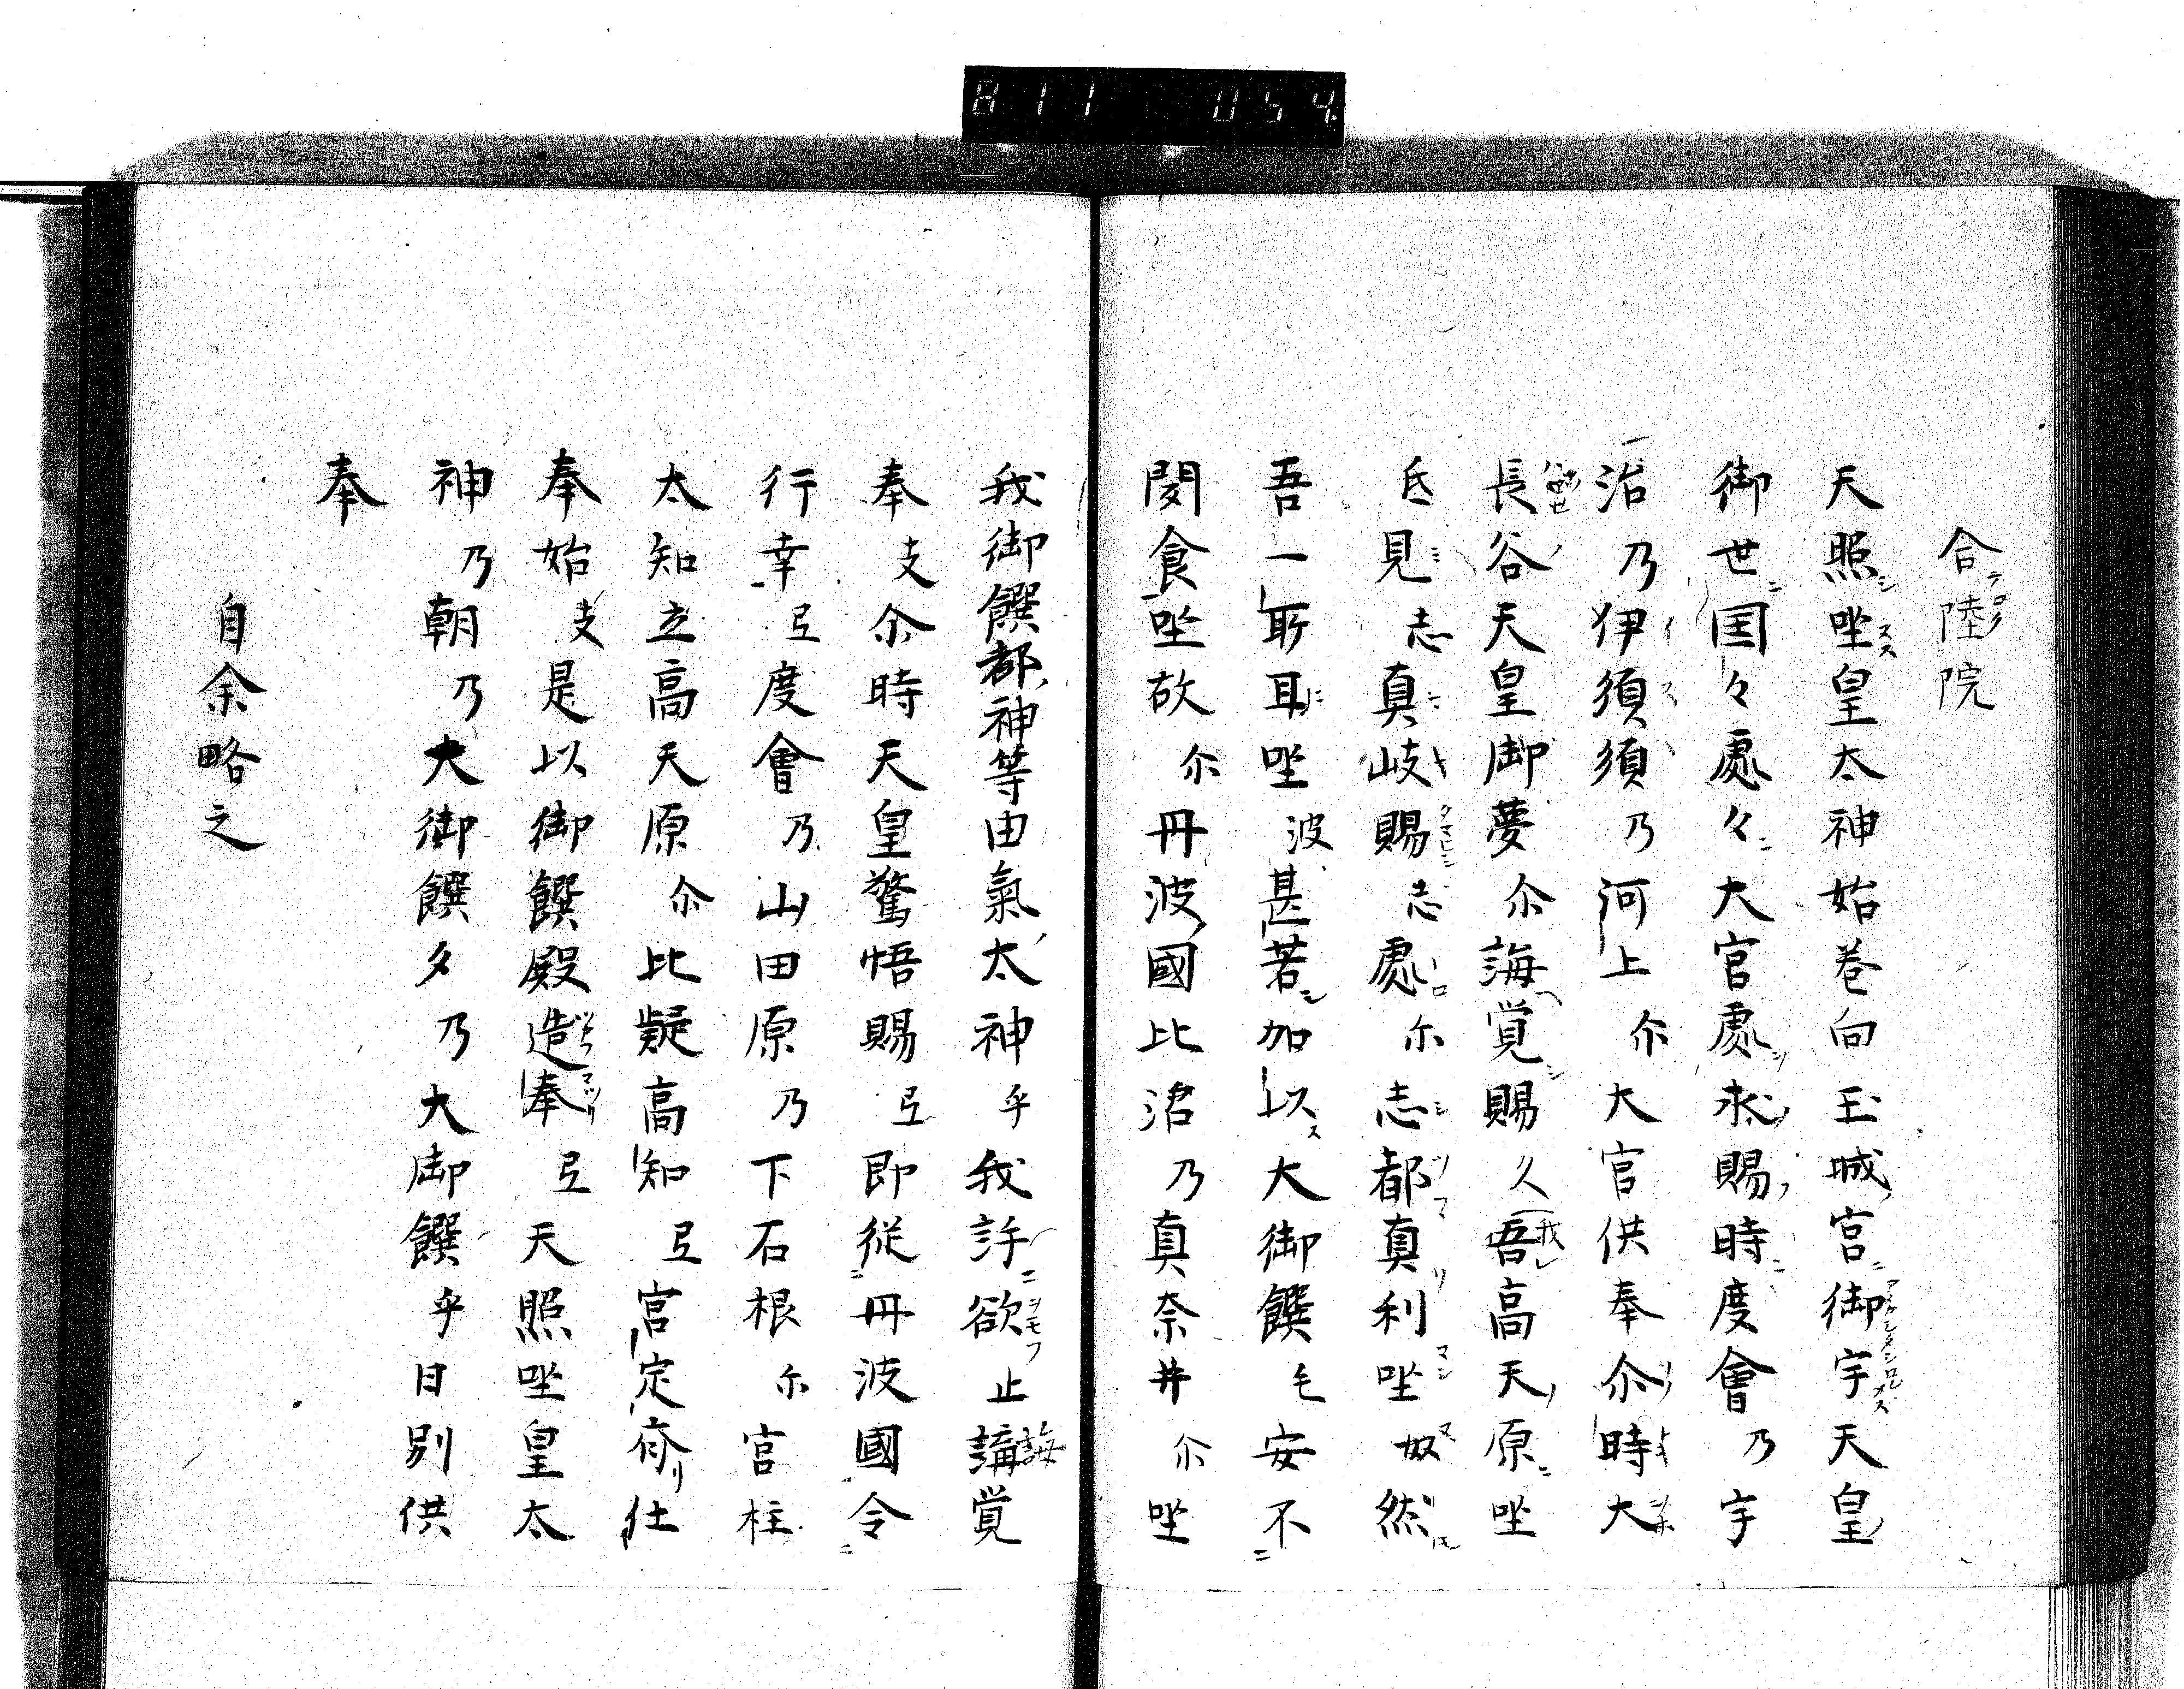 811 054
合陸院
天照坐皇太神始巻向玉城宮御宇天皇
御世国々處々大宮處求賜時度會乃宇
治乃伊須須乃河上尓大宮供奉尓時大
長谷天皇御夢尓誨覚賜久吾高天原坐
氐見志真岐賜志處尓志都真利坐奴然
吾一所耳坐波甚若加以大御饌毛安不
聞食坐故尓丹波國比治乃真奈井尓坐
我御饌都神等由氣太神乎我許欲止誨覚
奉支尓時天皇驚悟賜弖即従丹波國令
行幸弖度會乃山田原乃下石根尓宮柱
太知立高天原尓比疑高知弖宮定齋仕
奉始支是以御饌殿造奉弖天照坐皇太
神乃朝乃大御饌夕乃大御饌乎日別供
奉
自余略之